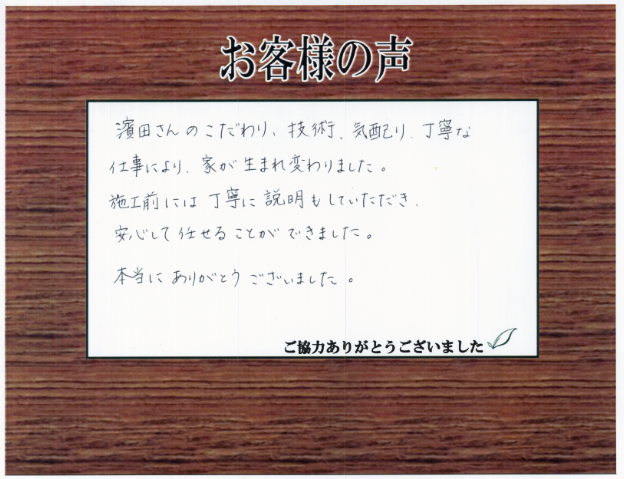 お客様の声
濱田さんのこだわり、技術、気配り、丁寧な
仕事により、家が生まれ変わりました。
施工前には丁寧に説明もしていただき、
安心して任せることができました。
本当にありがとうございました。
ご協力ありがとうございました